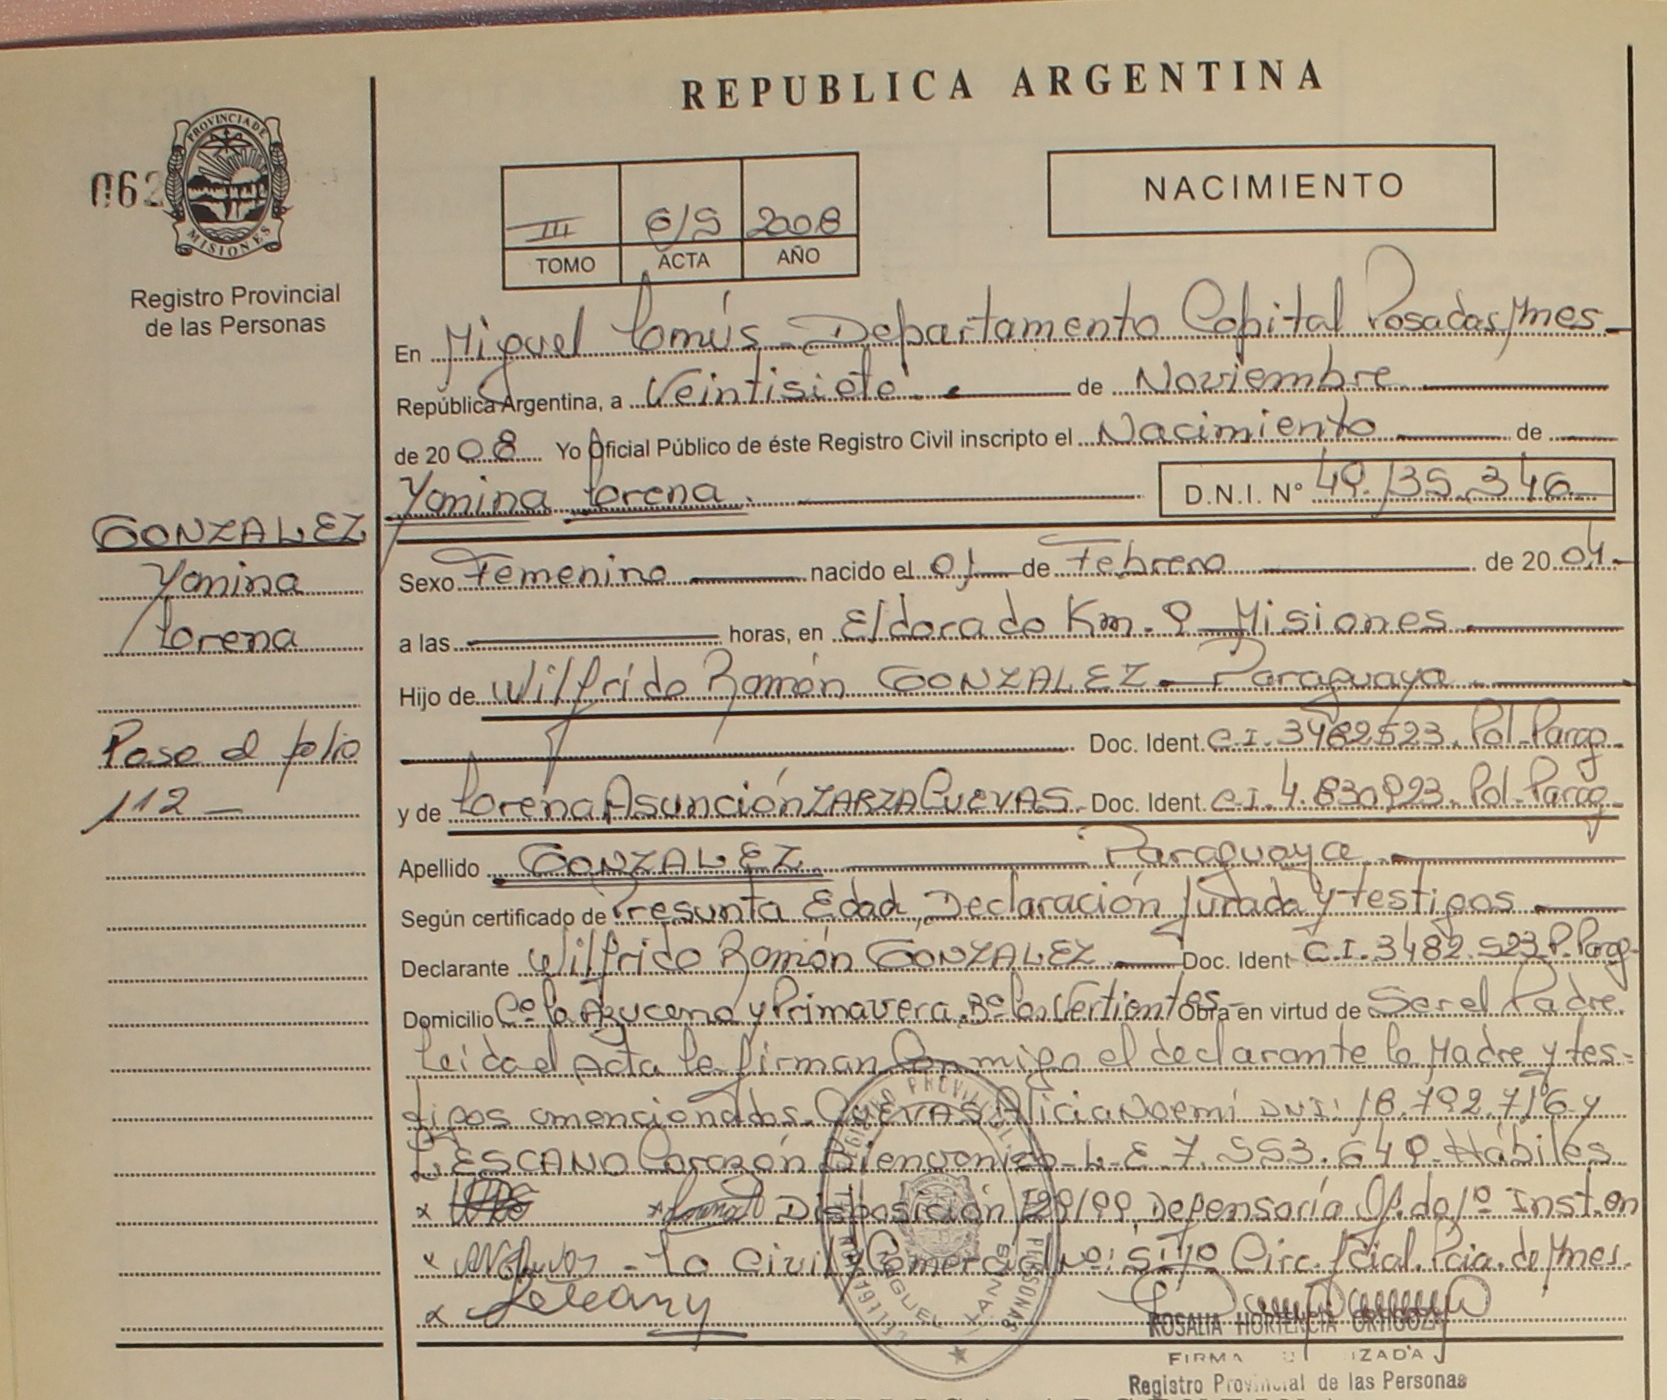 REPUBLICA ARGENTINA
PROVINCIA DE
MISIONES
062
Registro Provincial
de las Personas
III 2008
TOMO ACTA AÑO
NACIMIENTO
En Miguel Departamento Capital Posadas, Mnes
República Argentina, a Veintisiete de Noviembre
de 2008. Yo Oficial Público de éste Registro Civil inscripto el Nacimiento de
Yanina Lorena. D.N.I. Nº
GONZALEZ
Yanina
Lorena
Pase al folio
112
Sexo Femenino nacido el 01 de Febrero de 2004.
a las horas, en Eldorado Km. 9 Misiones
Hijo de Wilfrido Ramón GONZALEZ - Paraguaya
Doc. Ident. C.I. 3482523. Pol. Parag.
y de Lorena Asunción ZARZA CUEVAS. Doc. Ident. C.I. 4.830.923. Pol. Parag.
Apellido GONZALEZ Paraguaya
Según certificado de Presunta Edad, Declaración Jurada y testigos
Declarante Wilfrido Ramón GONZALEZ Doc. Ident C.I. 3482.523 P. Parag.
Domicilio Cº la Azucena y Primavera, Bº las Vertientes Obra en virtud de Ser el Padre
Leida el Acta la firman Conmigo el declarante la Madre y tes-
tigos amencionados. CUEVAS Alicia Noemí DNI: 18.792.716 y
LESCANO Corazón L.E 7.553.649 Hábiles
Disposición 129/99, Defensoría Of. de 1º Inst. en
Lo Civil y Comercial Nº: 5 1º Circ. Jcial. Pcia. de Mnes.
ROSALIA HORTENCIA ORTIGOZA
FIRMA
Registro Provincial de las Personas